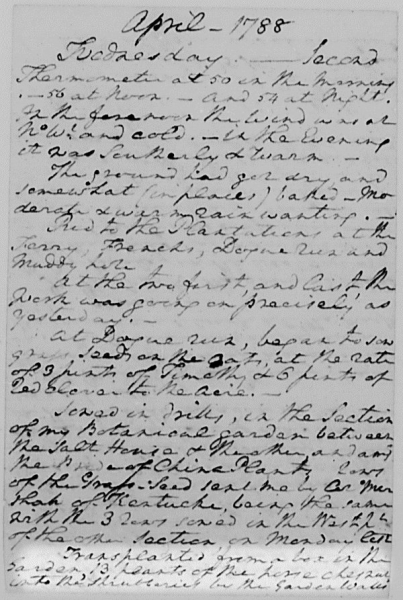 April - 1788
Wednesday. — Second
Thermometer at 50 in the Morning
- 56 at Noon - and 54 at Night.
In the forenoon the Wind was at
No. Wt. and cold. - In the Evening
it was Southerly & warm. -
The ground had got dry and
somewhat (in places) baked - Mo
derate & warm rain wanting. -
Rid to the Plantations at the
Ferry, Frenchs, Dogue run and
Muddy hole
At the two first, and last, the
Work was going on precisely as
yesterday. -
At Dogue run, began to sow
grass Seeds on the Oats, at the rate
of 3 pints of Timothy & 6 pints of
Red Clover to the Acre. -
Sowed in drills, in the Section
of my Botanical garden between
the Salt House & the other, and
the Pride of China Plants, rows
of the Grass-Seed sent me by Cos
of Kentucke, being the same
with the 3 rows sowed in the West pt.
of the other Section on Monday last
Transplanted from a box in the
garden, 13 plants of the horse chesnut
into the Shrubberies by the Garden Walls